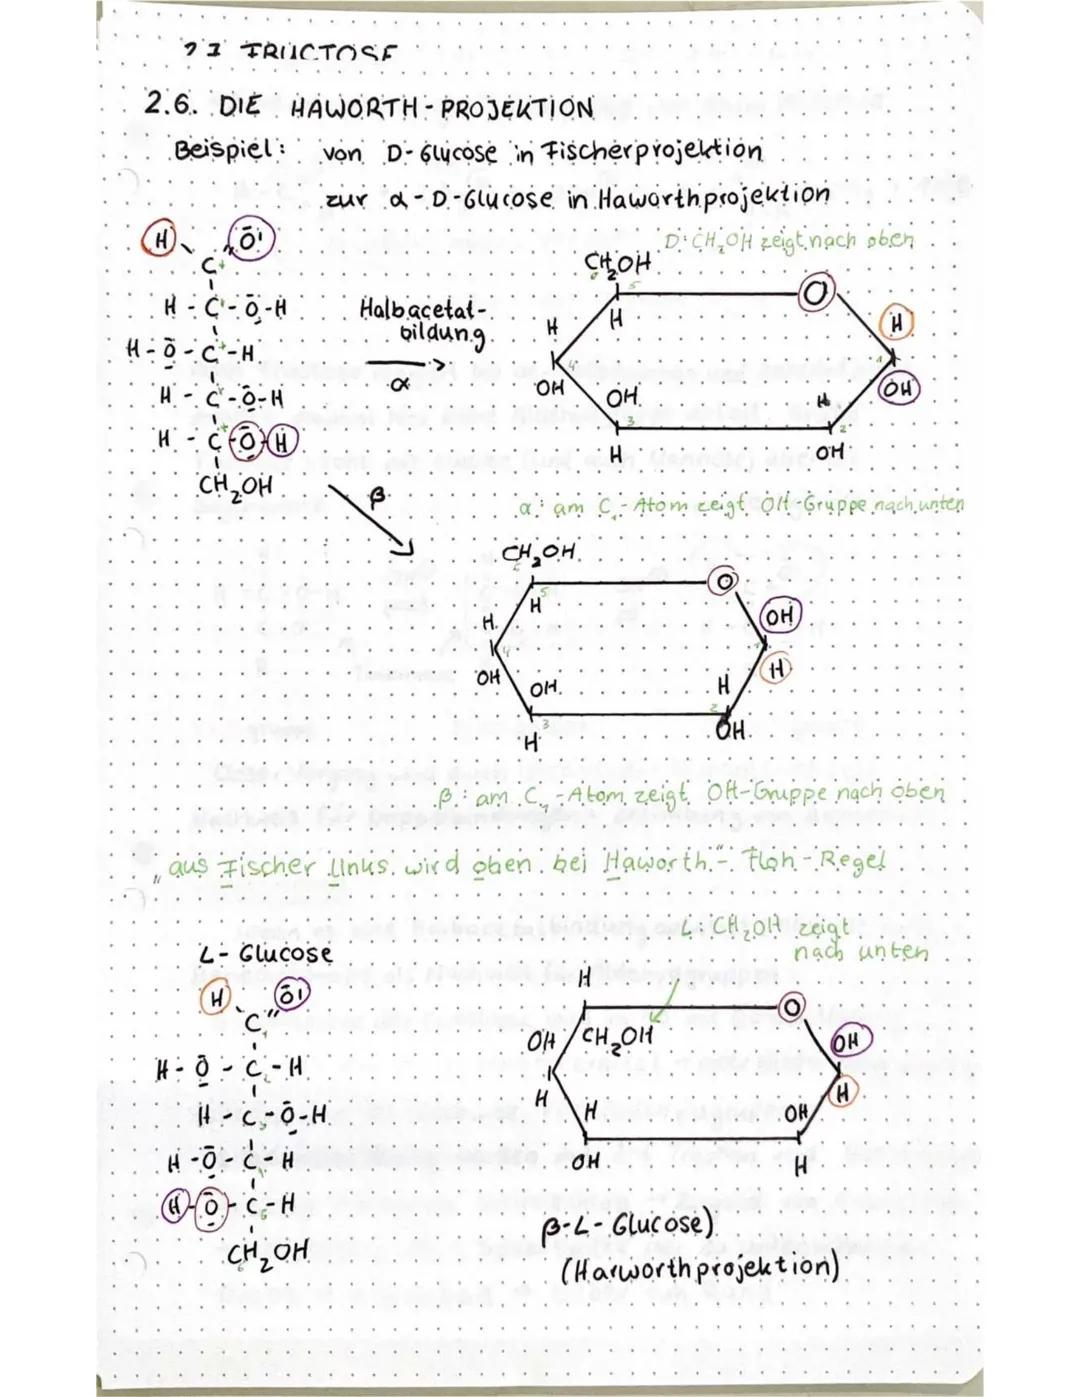 FRUCTOSE
2.6. DIE HAWORTH-PROJEKTION
Beispiel: von D-Glucose in Fischerprojektion
zur α-D-Glucose in Haworthprojektion
D: CH2OH zeigt nach oben
H O
C
H - C - O - H
H - O - C - H
H - C - O - H
H - C - O - H
CH2OH
Halbacetal-
bildung
α
β
CH2OH
5
O
H
H
H
4
1
OH
OH
OH
3
H
2
H
OH
α: am C1-Atom zeigt OH-Gruppe nach unten
CH2OH
6
5
O
H
OH
H
4
1
H
OH
OH
H
3
2
H
OH
β: am C1-Atom zeigt OH-Gruppe nach oben
„aus Fischer Links wird oben bei Haworth" - Floh-Regel
L: CH2OH zeigt
nach unten
L-Glucose
H O
C
H - O - C - H
H - C - O - H
H - O - C - H
H - O - C - H
CH2OH
H
O
OH
CH2OH
OH
H
H
H
OH
OH
H
β-L-Glucose)
(Harworthprojektion)